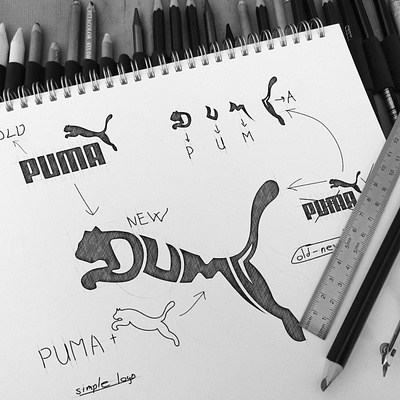 OLD
PUMA
PUM
→A
P U M
NEW
PUM
PUMA
old-new
PUMA +
simple logo